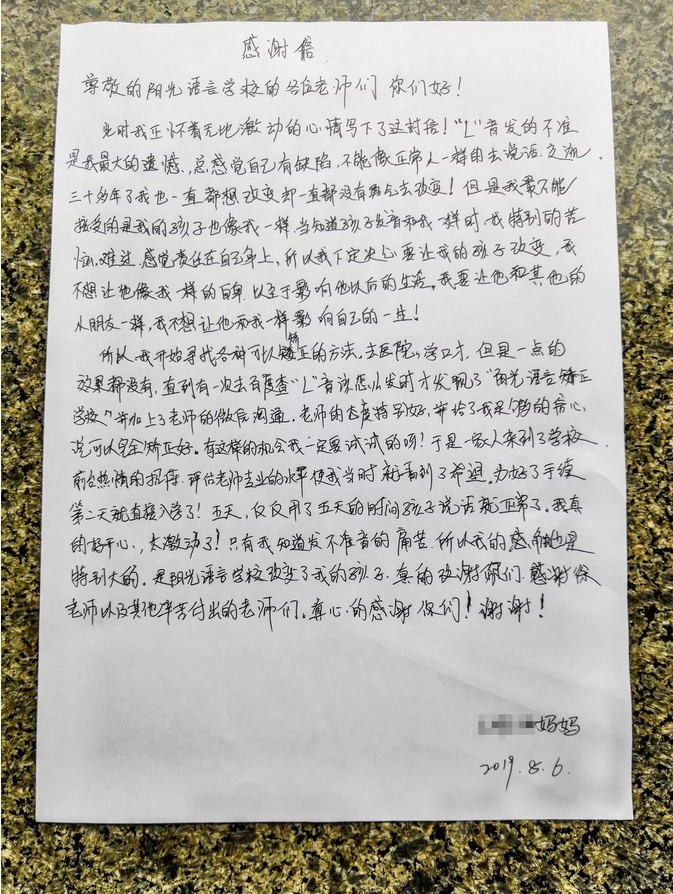 感谢信
尊敬的阳光语言学校的各位老师们 你们好！
此时我正怀着无比激动的心情写下了这封信！“L”音发的不准
是我最大的遗憾，总感觉自己有缺陷，不能像正常人一样的去说话.交流.
三十多年了我也一直都想改变却一直都没有去改变！但是我最不能
接受的是我的孩子也像我一样.当知道孩子发音和我一样时.我特别的苦
恼.难过.感觉责任在自己身上，所以我下定决心要让我的孩子改变，我
不想让他像我一样的自卑.以至于影响他以后的生活。我要让他和其他的
小朋友一样，我不想让他和我一样影响自己的一生！
所以.我开始寻找各种可以矫正的方法.去医院.学口才.但是一点的
效果都没有，直到有一次去百度查“L”音该怎么发时才发现了“阳光语言矫正
学校”并加上了老师的微信沟通.老师的态度特别好，并给了我足够的信心，
说可以完全矫正好。有这样的机会我一定要试试的呀！于是一家人来到了学校.
前台热情的招待.评估老师专业的水平使我当时就看到了希望.办好了手续
第二天就直接入学了！五天，仅仅用了五天的时间孩子说话就正常了，我真
的好开心，太激动了！只有我知道发不准音的痛苦.所以我的感触也是
特别大的。是阳光语言学校改变了我的孩子.真的谢谢你们.感谢徐
老师以及其他辛苦付出的老师们。真心的感谢你们！谢谢！
妈妈
2019.8.6.